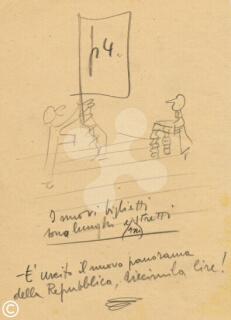 p4.
I nuovi biglietti
sono lunghi e stretti
- E' uscito il nuovo panorama
della Repubblica, diecimila lire!